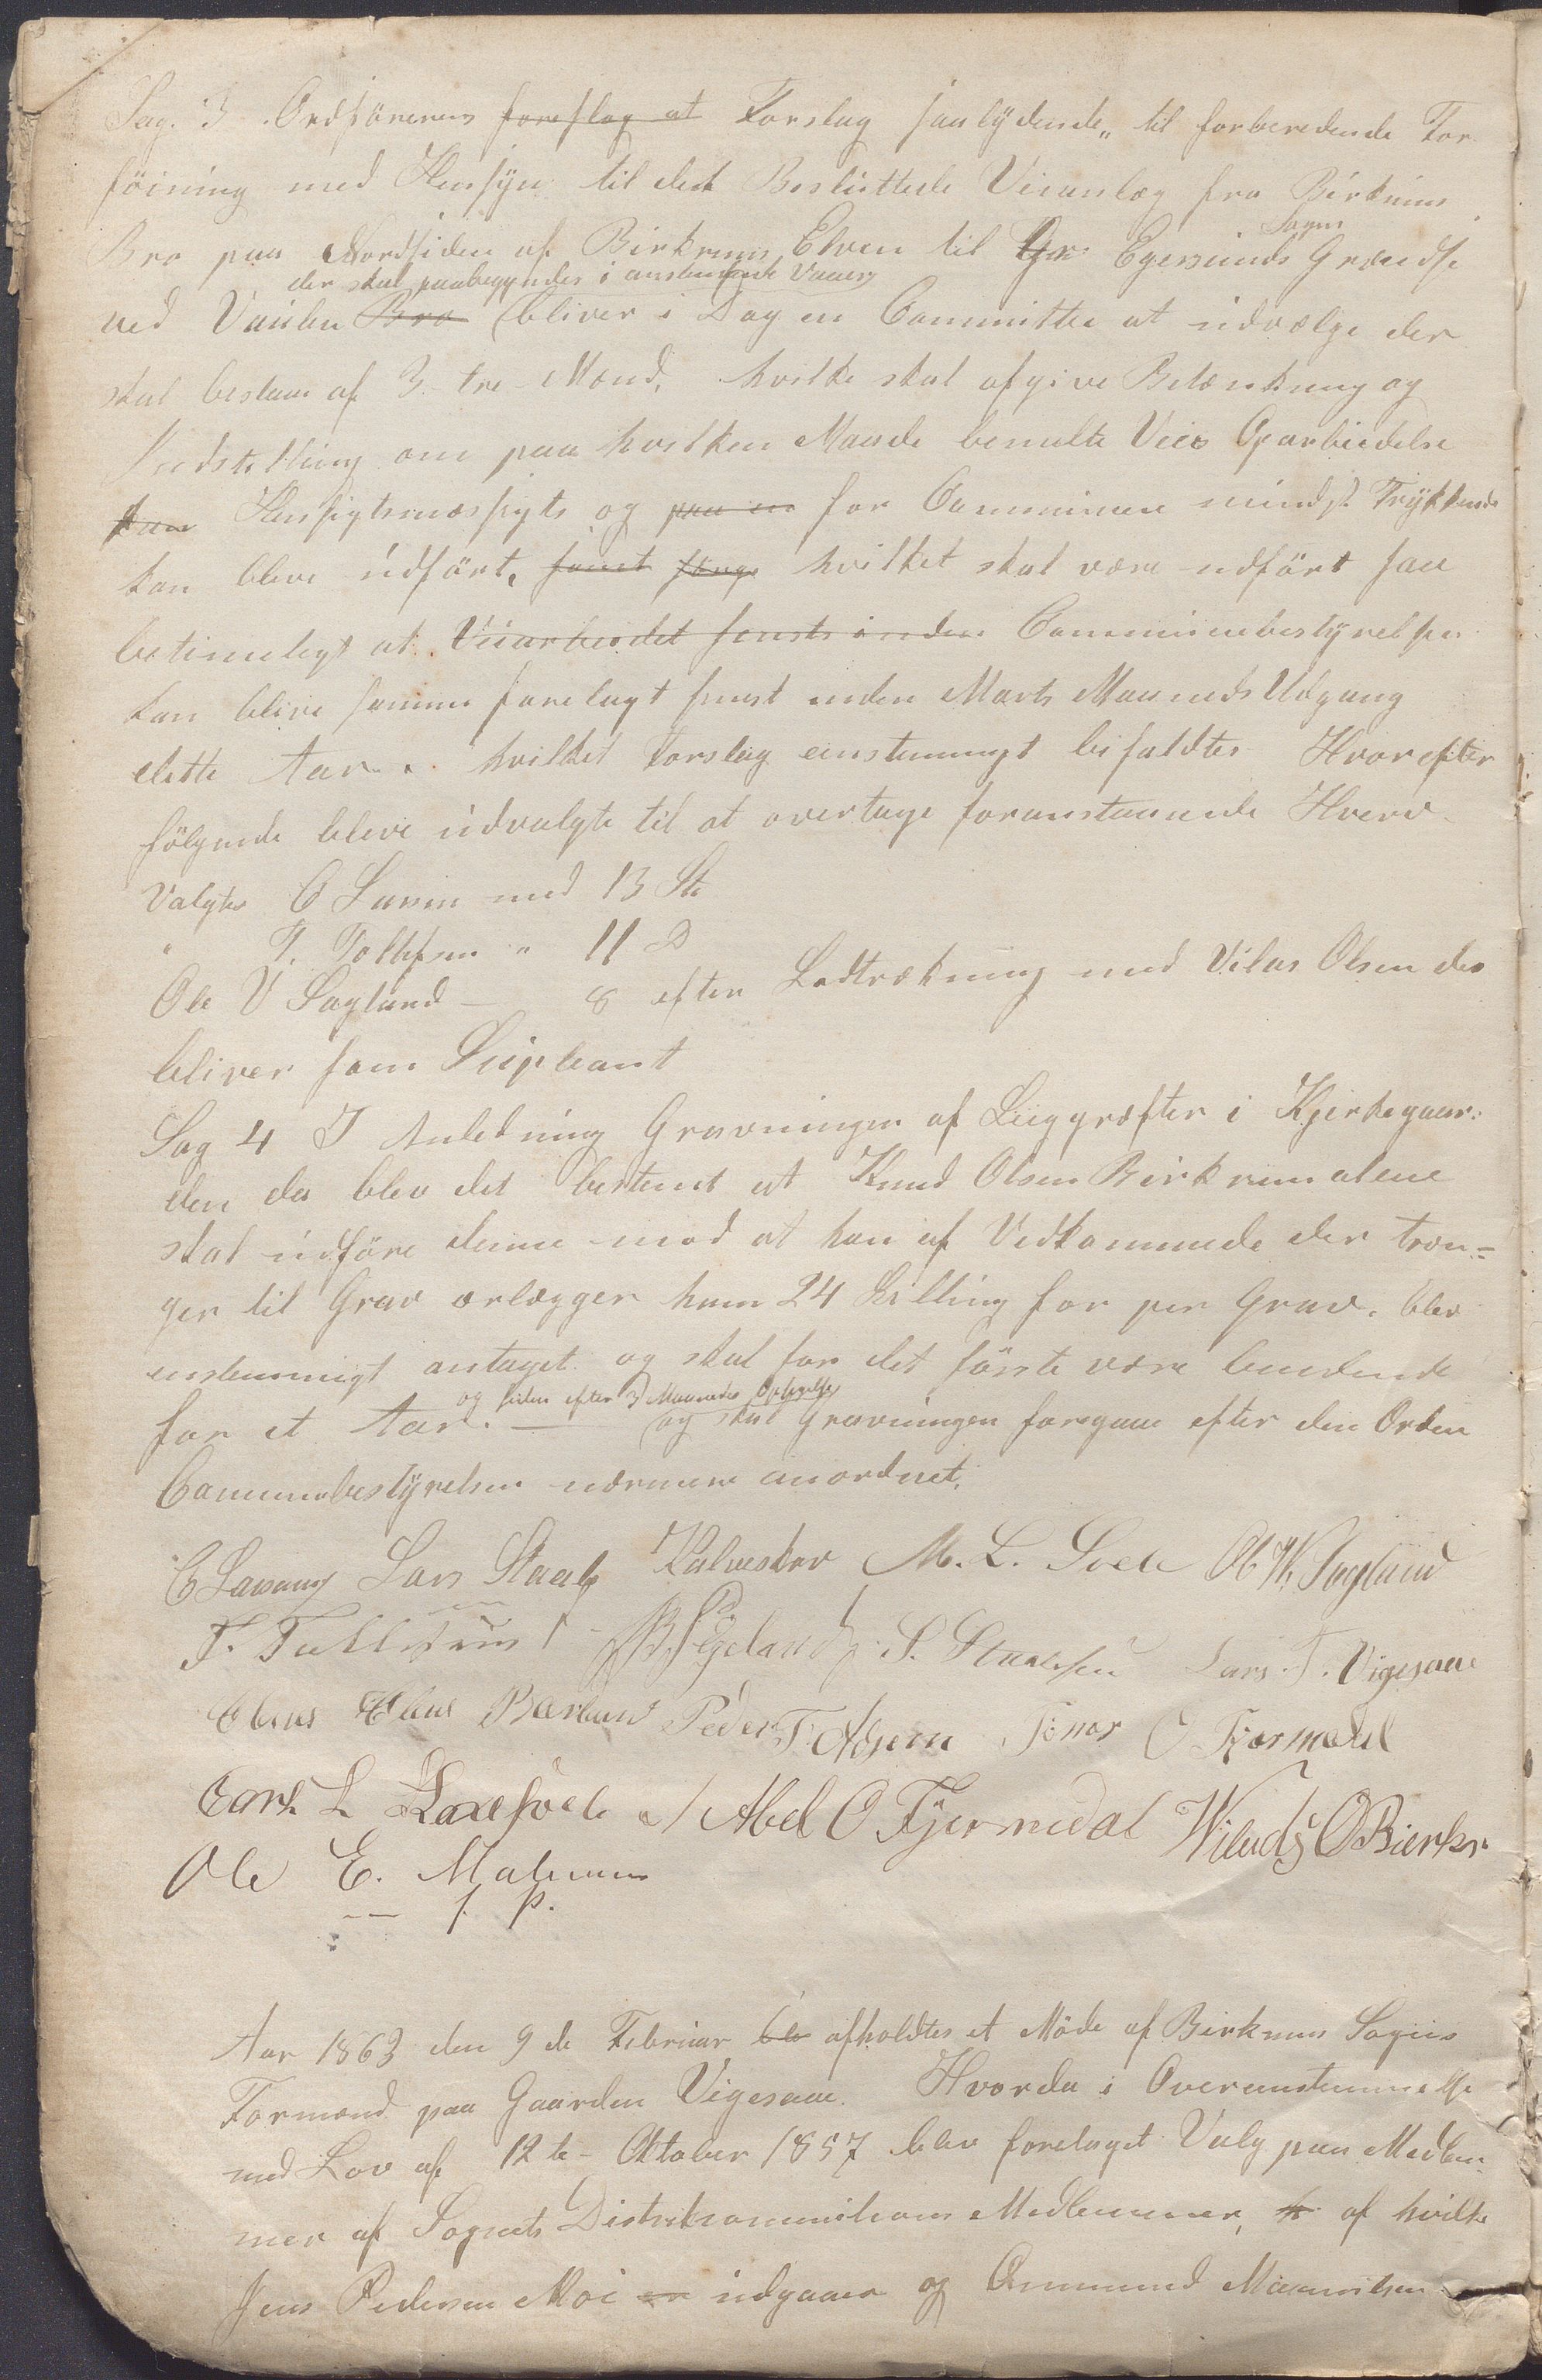 Sag. 3 Ordförerens foreslag at Forslag saalydende„ til forberedende For
föining med Hensÿn til det Besluttede Veianlæg fra Birkrims
Bro paa Nordsiden af Birkrims Elven til Gr Egersunds Sogns Grændse
der skal paabegyndes i anstundende Vaar
ved Vaulen Bro (bliver i Dag en Committee at udvælge der
skal bestaa af 3 tre Mænd, hvilke skal afgive Betænkning og
Indstilling om paa hvilken Maade bemelte Veies Oparbiedelse
kan Hensigtsmæssigts og paa en for Communen mindst Trykkende
kan blive udfört, hvilket skal være udfört saa
betimeligt at Veiarbeidet senst inden Communebestyrelsen
kan blive samme forelagt senest inden Marts Maaneds Udgang
dette Aar. hvilket Forslag eenstemmigt bifaldtes Hvorefter
fölgende bleve udvalgte til at overtage foranstaaende Hverv.
Valgtes C Lavan med 13 St
" T. Tollefsen " 11 D
Ole V Saglund — 8 efter Lodtrækning med Vilas Olsen der
bliver som Supleant
Sag 4 I Anledning Gravningen af Liiggræfter i Kjerkegaar:
den da blev det bestemt at Knud Olsen Birkrem alene
skal udföre denne mod at han af Vedkommende der træn=
ger til Grav erlægger ham 24 Skilling for per Grav. blev
enstemmigt antaget og skal for det förste være bindende
for et Aar. — og siden efter 3 Maaneders Opsigelse og skal Gravningen foregaa efter den Orden
Communebestyrelsen nærmere anordnet.
C Lavang Lars Staale Kalveskar M. L. Svele Ol W. Saglund
T. Tollefsen Egeland S. Staalesen Lars T. Vigesaae
Elias Elias Peder T. Tönnes O Tjörmedal
Carl L Laxesvele Abel O Tjörmedal Wilads O Bierkr
Ole E. Malmum
f. p.
Aar 1863 den 9 de Februar ble afholdtes et Möde af Birkrims Sogns
Formænd paa Gaarden Vigesaae. Hvorda i Overeenstemmelse
med Lov af 12 te Oktober 1857 blev foretaget Valg paa Medlem
mer af Sognets Distriktcommissions Medlemmer, af hvilke
Jens Pedersen Moi er udgaaer og Ommund